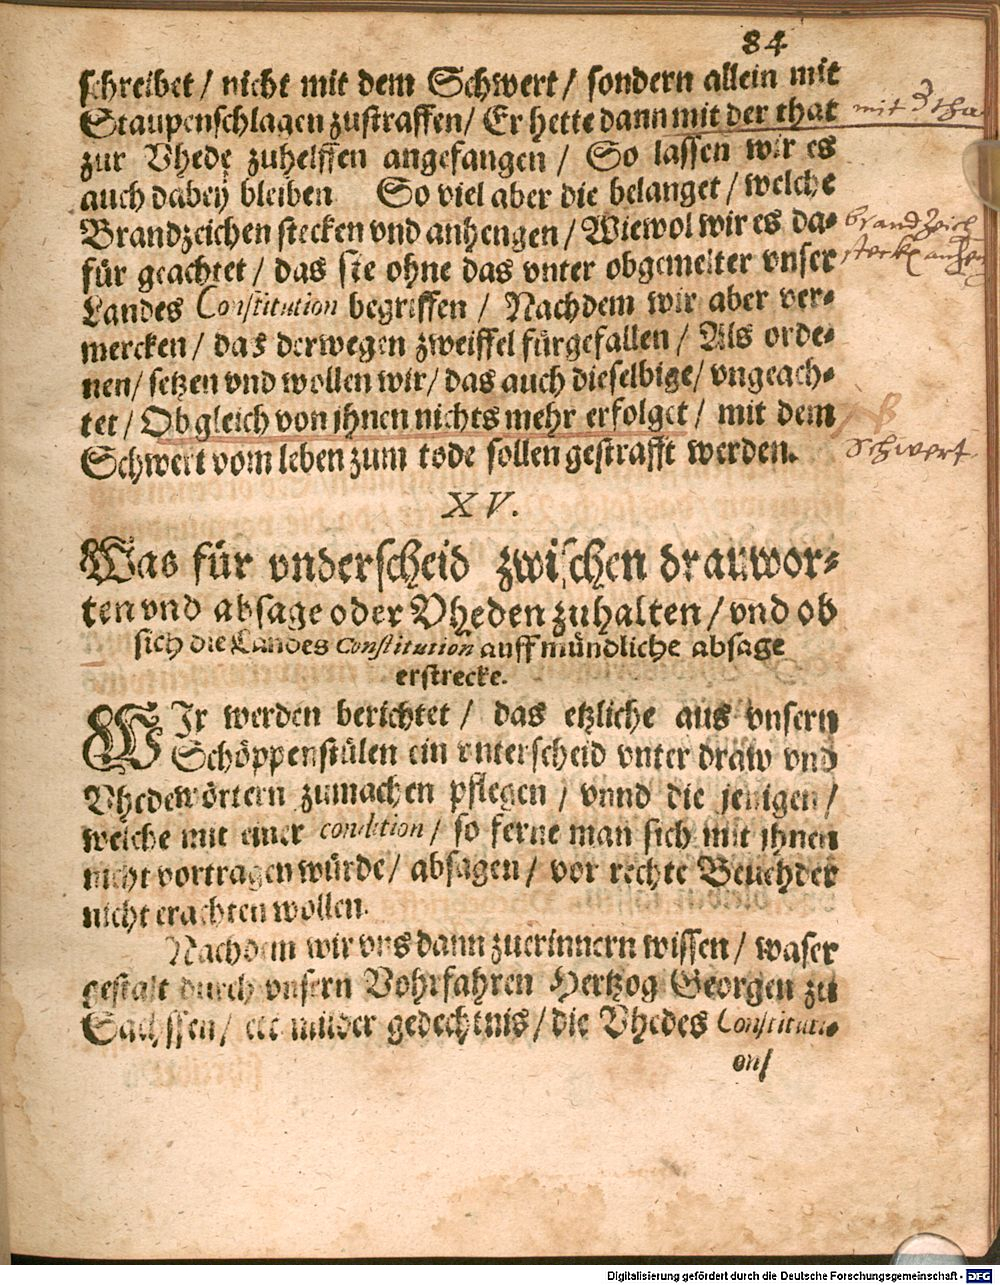 84
schreibet / nicht mit dem Schwert / sondern allein mit
Staupenschlagen zustraffen / Er hette dann mit der that
mit d tha
zur Vhede zuhelffen angefangen / So lassen wir es
auch dabey bleiben So viel aber die belanget / welche
Brandzeichen stecken vnd anhengen / Wiewol wir es da-
brandzeich
für geachtet / das sie ohne das vnter obgemelter vnser
Landes Constitution begriffen / Nachdem wir aber ver-
mercken / das derwegen zweiffel fürgefallen / Als orde-
nen / setzen vnd wollen wir / das auch dieselbige / vngeach-
tet / Ob gleich von jhnen nichts mehr erfolget / mit dem
Schwert vom leben zum tode sollen gestrafft werden.
Schwert
XV.
Was für vnderscheid zwischen drauwor-
ten vnd absage oder Vheden zuhalten / vnd ob
sich die Landes Constitution auff mündliche absage
erstrecke.
WIr werden berichtet / das etzliche aus vnsern
Schöppenstülen ein vnterscheid vnter draw vnd
Vhedewörtern zumachen pflegen / vnnd die jenigen /
welche mit einer condition / so ferne man sich mit jhnen
nicht vortragen würde / absagen / vor rechte Bevehder
nicht erachten wollen.
Nachdem wir vns dann zuerinnern wissen / waser
gestalt durch vnsern Vohrfahren Hertzog Georgen zu
Sachssen / etc milder gedechtnis / die Vhedes Constituti-
ons
Digitalisierung gefördert durch die Deutsche Forschungsgemeinschaft - DFG